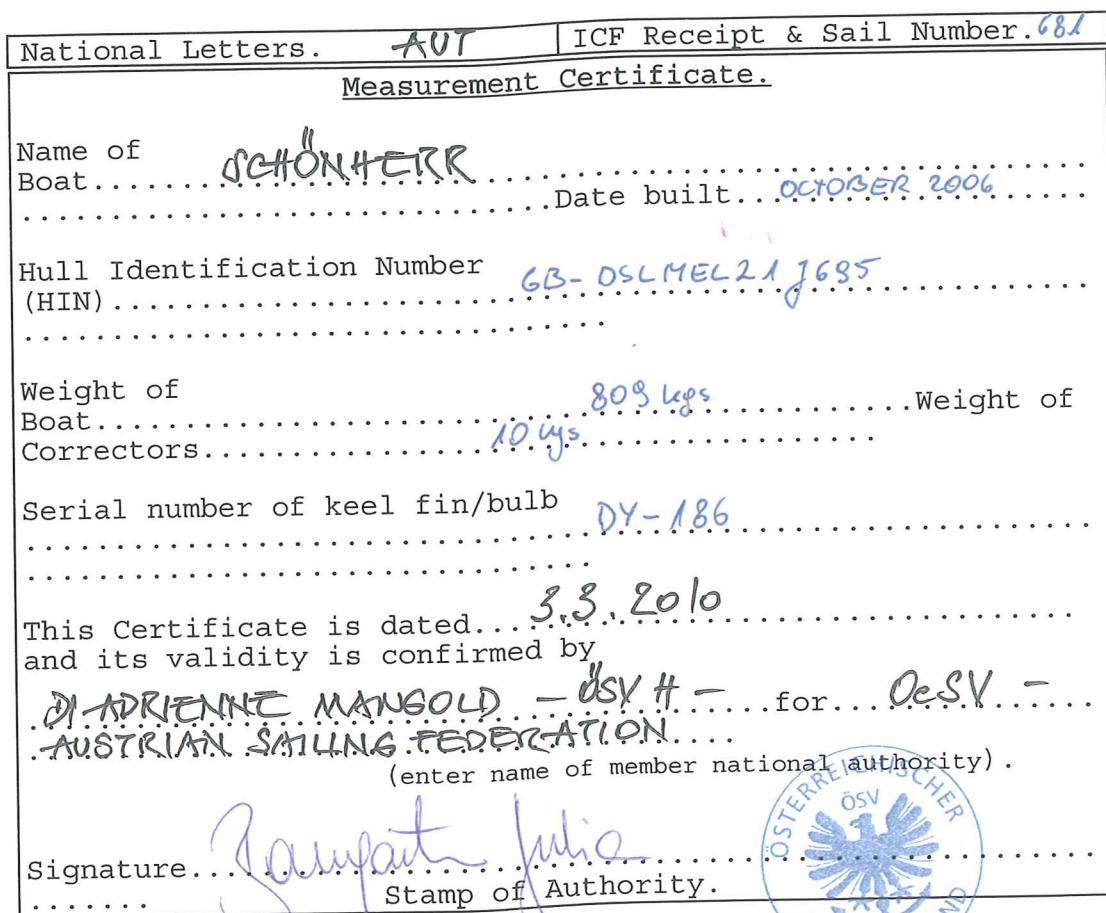 National Letters. AUT ICF Receipt & Sail Number. 681
Measurement Certificate.
Name of
Boat....... SCHÖNHERR ..................................
..............................Date built...OCTOBER 2006......
Hull Identification Number
(HIN)....... GB-DSLMEL21J695 .......
.................................
Weight of
Boat....... 809 kgs .............Weight of
Correctors....... 10 kgs .................
Serial number of keel fin/bulb
....... DY-186 .......
................................
This Certificate is dated... 3.3.2010 .......
and its validity is confirmed by
DI ADRIENNE MANGOLD - ÖSV H - ....for... OeSV -
AUSTRIAN SAILING FEDERATION....
(enter name of member national authority).
ÖSTERREICHISCHER
ÖSV
Signature....... Julia .......
....... Stamp of Authority.